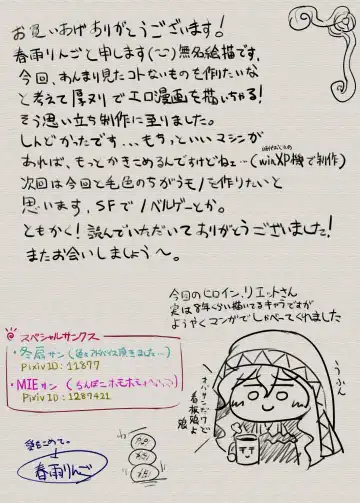 お買いあげありがとうございます!
春雨りんごと申します(~)無名絵描です。
今回、あんまり見たコトないものを作りたいな
と考えて厚ヌリでエロ漫画を描いちゃる!
そう思い立ち制作に至りました。
しんどかったです...もちっといいマシンが
あれば、もっとかきこめるんですけどねェ…(winXP機で制作)
次回は今回と毛色のちがうモノを作りたいと
思います、SFでノベルゲーとか。
ともかく!読んでいただいてありがとうございました!
またお会いしましょう~。
今回のヒロイン、リエットさん
実は8年くらい描いてるキャラですが
ようやくマンガでしゃべってくれました
スペシャルサンクス
・冬扇サン(色々アドバイス頂きました…)
Pixiv ID: 11877
・MIEサン
Pixiv ID: 1287421
オバサンだケど
看板娘よ
娘
うふん
愛をこめて。
春雨りんご